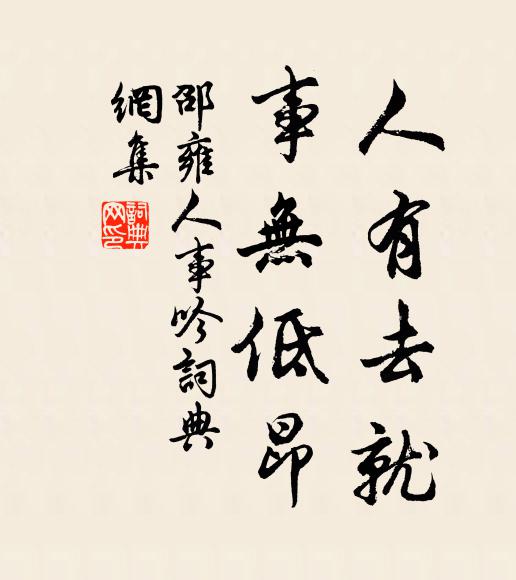 人有去就
事無低昂
邵雍人事吟詞典
網集
詞典
網印